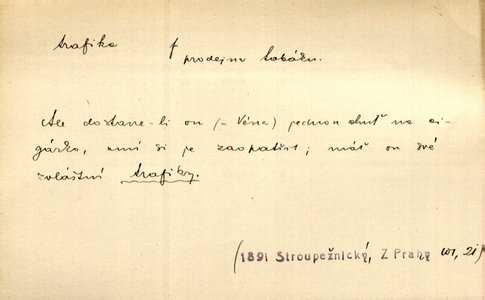 trafika f prodejna tabáku.
Ale dostane-li on (= Véna) jednou chuť na ci-
gárko, umí si je zaopatřit; máť on své
zvláštní trafiky.
(1891 Stroupežnický, Z Prahy 21)